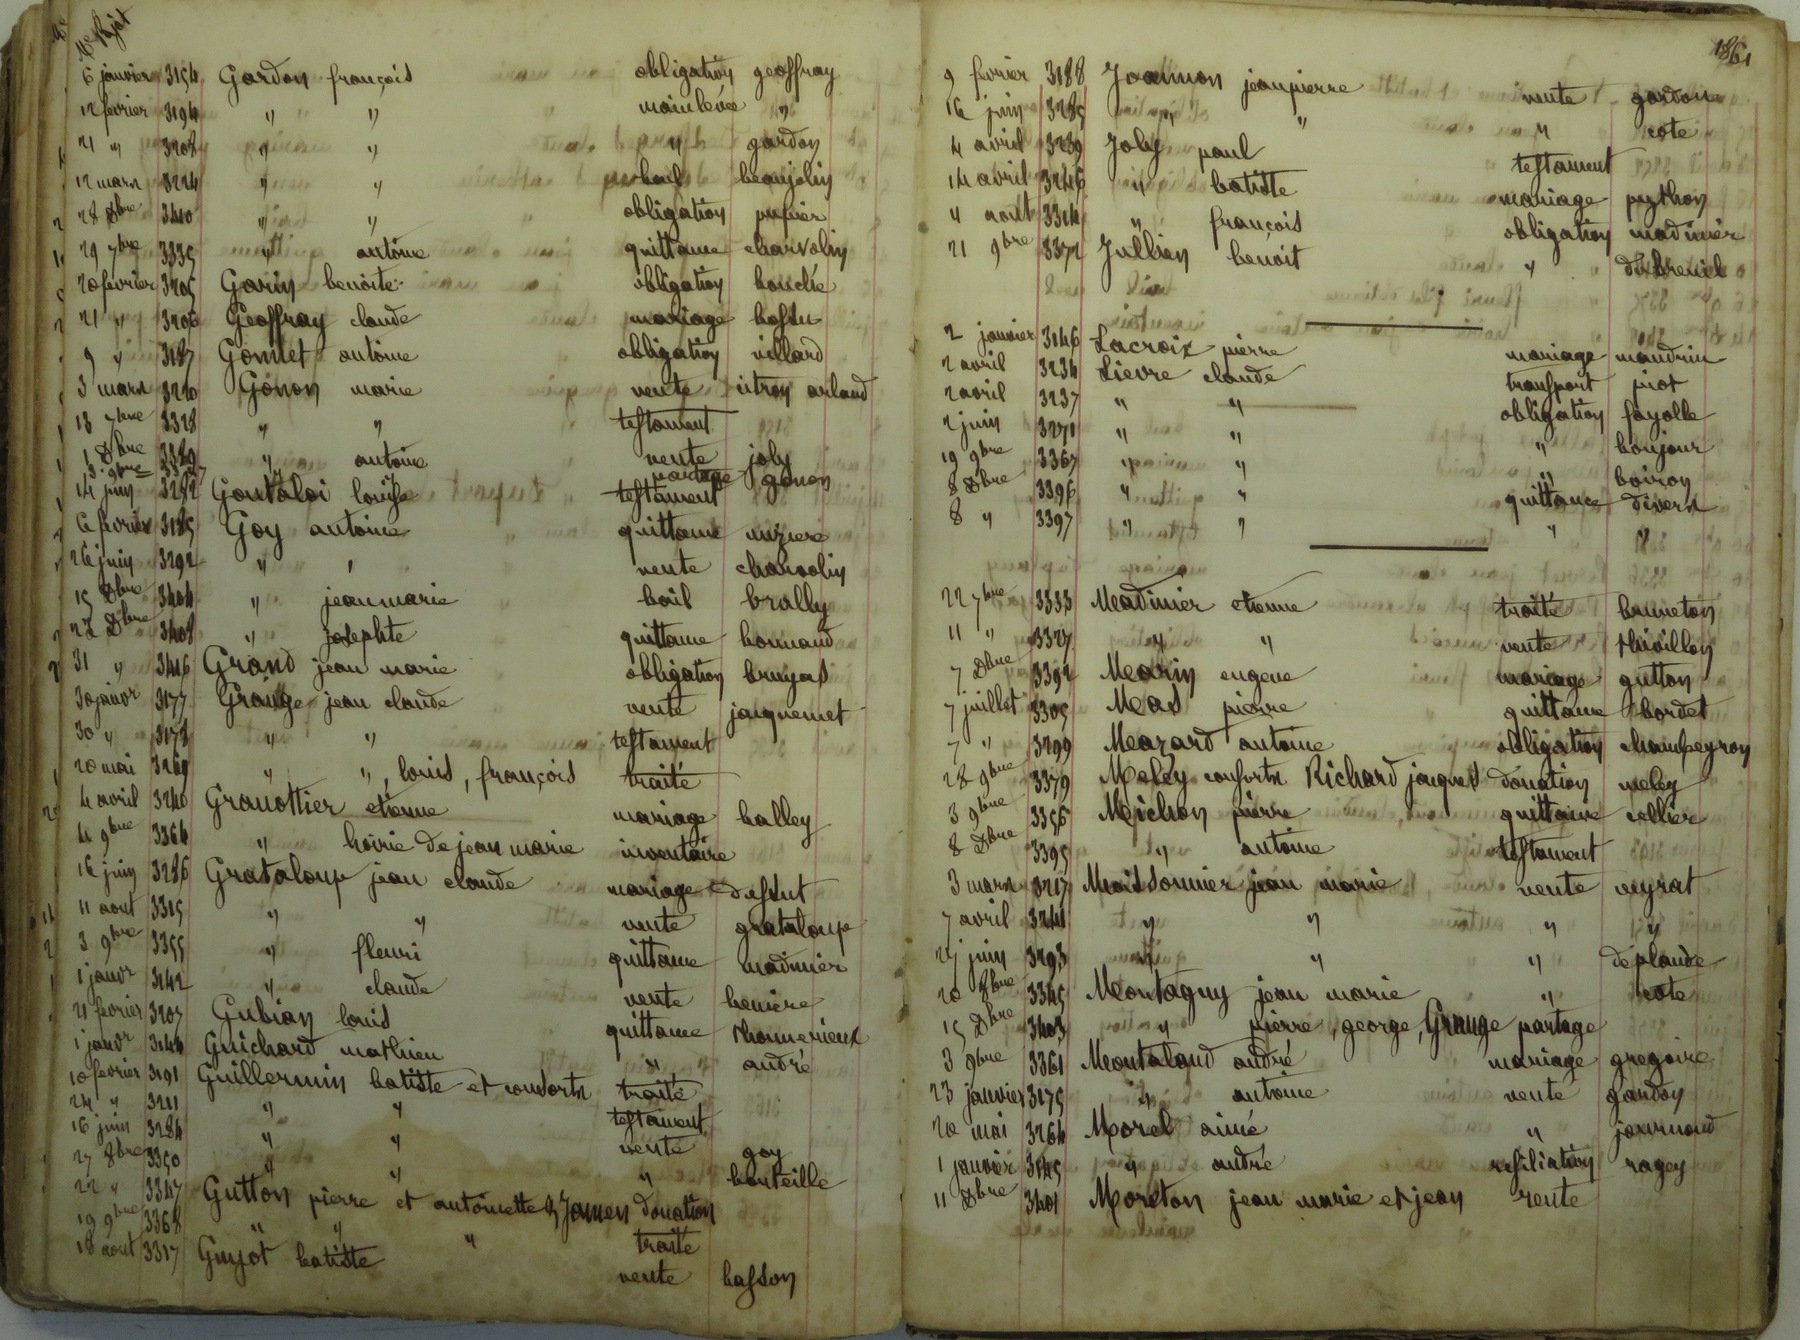 Me Pajot
6 janvier 3154 Gardon françois obligation geoffray
12 fevrier 3194 " " mainlevée "
21 " 3208 " " " gardon
12 mars 3224 " " bail beaujolin
28 Dbre 3410 " " obligation pupier
29 7bre 3335 " antoine quittance charvolin
20 fevrier 3205 Garin benoite obligation bouchée
21 " 3206 Geoffray claude mariage
9 " 3187 Gonnet antoine obligation villard
3 mars 3220 Gonon marie vente citroy arland
13 7bre 3328 " " testament
1 Dbre 3389 " antoine vente joly
3 9bre partage gonon
14 juin 3282 louise testament
6 fevrier 3185 Goy antoine quittance miziere
26 juin 3292 " " vente charvolin
15 Dbre 3404 " jeanmarie bail brally
22 Dbre 3408 " josephte quittance bonnand
31 " 3416 Grand jean marie obligation bruyas
30 janvr 3177 Grange jean claude vente jacquemet
30 " 3178 " " testament
20 mai 3269 " ", louis, françois traité
4 avril 3240 Granottier etienne mariage balley
4 9bre 3364 " hoirie de jean marie inventaire
16 juin 3286 Grataloup jean claude mariage
11 aout 3315 " " vente grataloup
3 9bre 3355 " fleuri quittance madinier
1 janvr 3142 " claude vente
21 fevrier 3207 Gubian louis quittance
1 janvr 3144 Guichard mathieu " andré
10 fevrier 3191 Guillermin batiste et consorts traité
24 " 3211 " " testament
16 juin 3284 " " vente goy
27 8bre 3350 " " " bouteille
22 " 3347 Gutton pierre et antoinette & Jamen donation
19 9bre 3368 " " " traité
18 aout 3317 Guyot batiste vente basson
1861
9 fevrier 3188 Joannon jeanpierre vente gardon
16 juin 3285 " " " cote
4 avril 3239 Joly paul testament
14 avril 3246 " batiste mariage python
4 aout 3314 " françois obligation madinier
21 9bre 3372 Jullien benoit " dubreuil
2 janvier 3146 Lacroix pierre mariage mandrin
2 avril 3234 Lievre claude transport piot
2 avril 3237 " " obligation fayolle
2 juin 3271 " " " bonjour
19 9bre 3367 " " " boiron
8 Dbre 3396 " " quittance divers
8 " 3397 " " " "
22 7bre 3333 Madinier etienne traité bruneton
11 " 3327 " " vente thivillon
7 Dbre 3392 Marin eugene mariage gutton
7 juillet 3305 Mas pierre quittance bordet
7 " 3299 Mazard antoine obligation champeyron
28 9bre 3379 Meley consorts Richard jacques donation meley
3 9bre 3356 Michon pierre quittance cellier
8 Dbre 3395 " antoine testament
3 mars 3217 Moissonnier jean marie vente veyrat
7 avril 3241 " " " "
27 juin 3293 " " " deplaude
20 8bre 3345 Montagny jean marie " cote
15 Dbre 3403 " pierre, george, Grange partage
3 9bre 3361 Montaland andré mariage gregoire
23 janvier 3175 " antoine vente gardon
20 mai 3264 Morel aimé " journoud
1 janvier 3145 " andré resiliation ragey
11 Dbre 3401 Moreton jean marie et jean vente